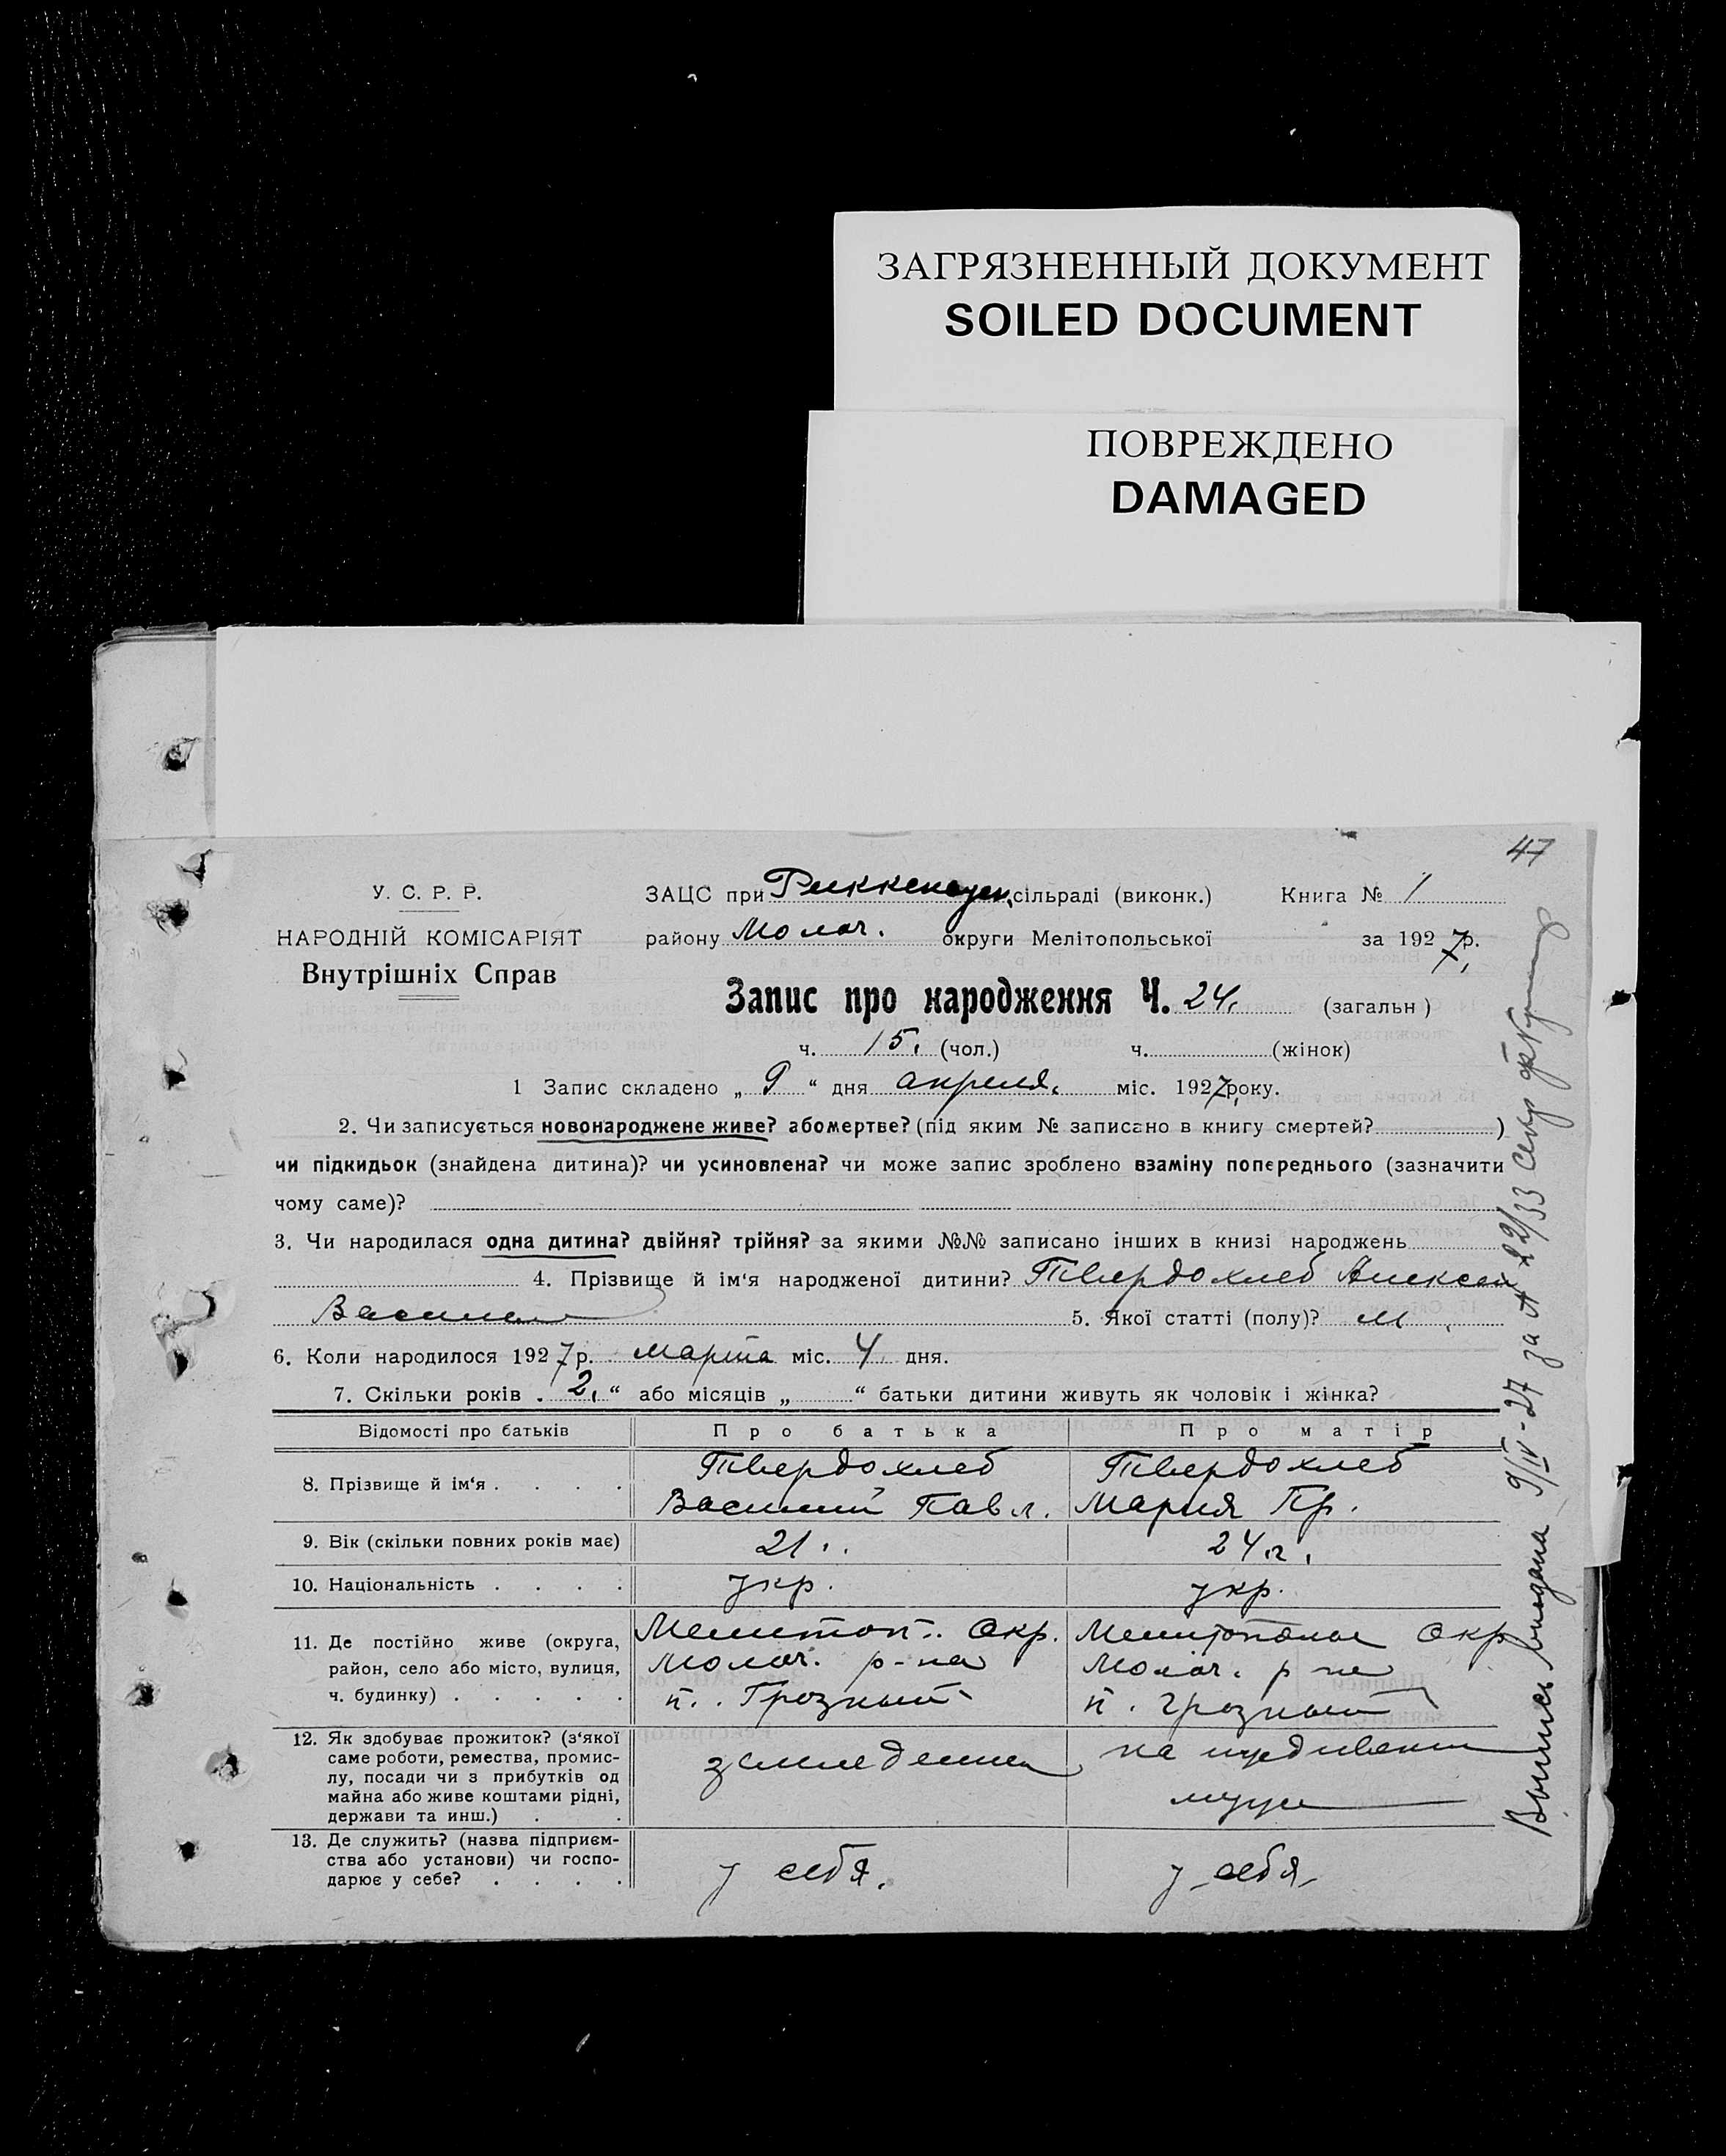 ЗАГРЯЗНЕННЫЙ ДОКУМЕНТ
SOILED DOCUMENT
ПОВРЕЖДЕНО
DAMAGED
47
У. С. Р. Р.
НАРОДНІЙ КОМІСАРІЯТ
Внутрішніх Справ
ЗАЦС при Риккенауск. сільраді (виконк.) Книга № 1
району Молоч. округи Мелітопольської за 1927 р.
Запис про народження Ч. 24. (загальн)
ч. 15. (чол.) ч. (жінок)
1 Запис складено „ 9 “ дня апреля. міс. 1927 року.
2. Чи записується новонароджене живе? або мертве? (під яким № записано в книгу смертей? )
чи підкидьок (знайдена дитина)? чи усиновлена? чи може запис зроблено взаміну попереднього (зазначити
чому саме)?
3. Чи народилася одна дитина? двійня? трійня? за якими №№ записано інших в книзі народжень
4. Прізвище й ім‘я народженої дитини? Твердохлеб Алексей
Васильев 5. Якої статті (полу)? м.
6. Коли народилося 1927 р. марта міс. 4 дня.
7. Скільки років „ 2. “ або місяців „ “ батьки дитини живуть як чоловік і жінка?
Відомості про батьків Про батька Про матір
8. Прізвище й ім‘я . . . . Твердохлеб Василий Павл. Твердохлеб Мария Пр.
9. Вік (скільки повних років має) 21. 24 г.
10. Національність . . . . укр. укр.
11. Де постійно живе (округа,
район, село або місто, вулиця,
ч. будинку) . . . . .
Мелитоп. Окр. Молоч. р-на п. Грозный
Мелитополь Окр Молоч. р-на п. Грозный
12. Як здобуває прожиток? (з‘якої
саме роботи, ремества, промис-
лу, посади чи з прибутків од
майна або живе коштами рідні,
держави та инш.) . .
земледелием
на иждивении мужа
13. Де служить? (назва підприєм-
ства або установи) чи госпо-
дарює у себе? . . . .
у себя.
у себя
Выпись выдана 9/IV-27 за № 22/33 Секр